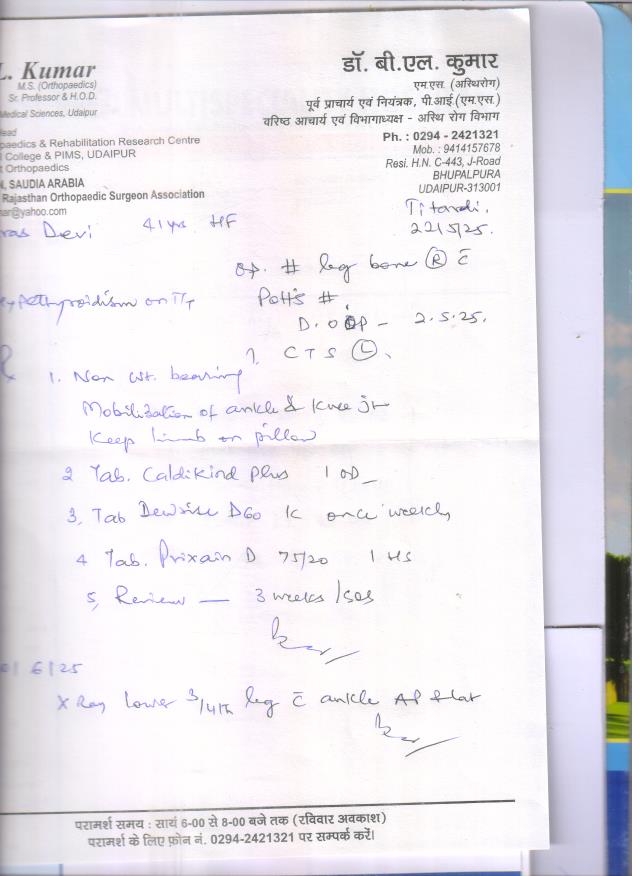 L. Kumar
M.S. (Orthopaedics)
Sr. Professor & H.O.D.
Medical Sciences, Udaipur
ead
paedics & Rehabilitation Research Centre
l College & PIMS, UDAIPUR
t Orthopaedics
N, SAUDIA ARABIA
Rajasthan Orthopaedic Surgeon Association
ar@yahoo.com
डॉ. बी.एल. कुमार
एम.एस. (अस्थिरोग)
पूर्व प्राचार्य एवं नियंत्रक, पी.आई.(एम.एस.)
वरिष्ठ आचार्य एवं विभागाध्यक्ष - अस्थि रोग विभाग
Ph. : 0294 - 2421321
Mob. : 9414157678
Resi. H.N. C-443, J-Road
BHUPALPURA
UDAIPUR-313001
ras Devi 41 yrs HF
22/5/25.
Op. # leg bone (R) c̄
ypothyroidism on T/T
Pott's #.
D.O OP - 2.5.25.
?. CTS (L).
1. Non wt. bearing
Mobilization of ankle & knee jt
Keep limb on pillow
2 Tab. Caldikind plus 1 OD
3, Tab D60 K once weekly
4 Tab. D 75/20 1 HS
5, Review — 3 weeks /SOS
/6/25
X Ray lower 3/4th leg c̄ ankle AP & lat
परामर्श समय : सायं 6-00 से 8-00 बजे तक (रविवार अवकाश)
परामर्श के लिए फ़ोन नं. 0294-2421321 पर सम्पर्क करें।